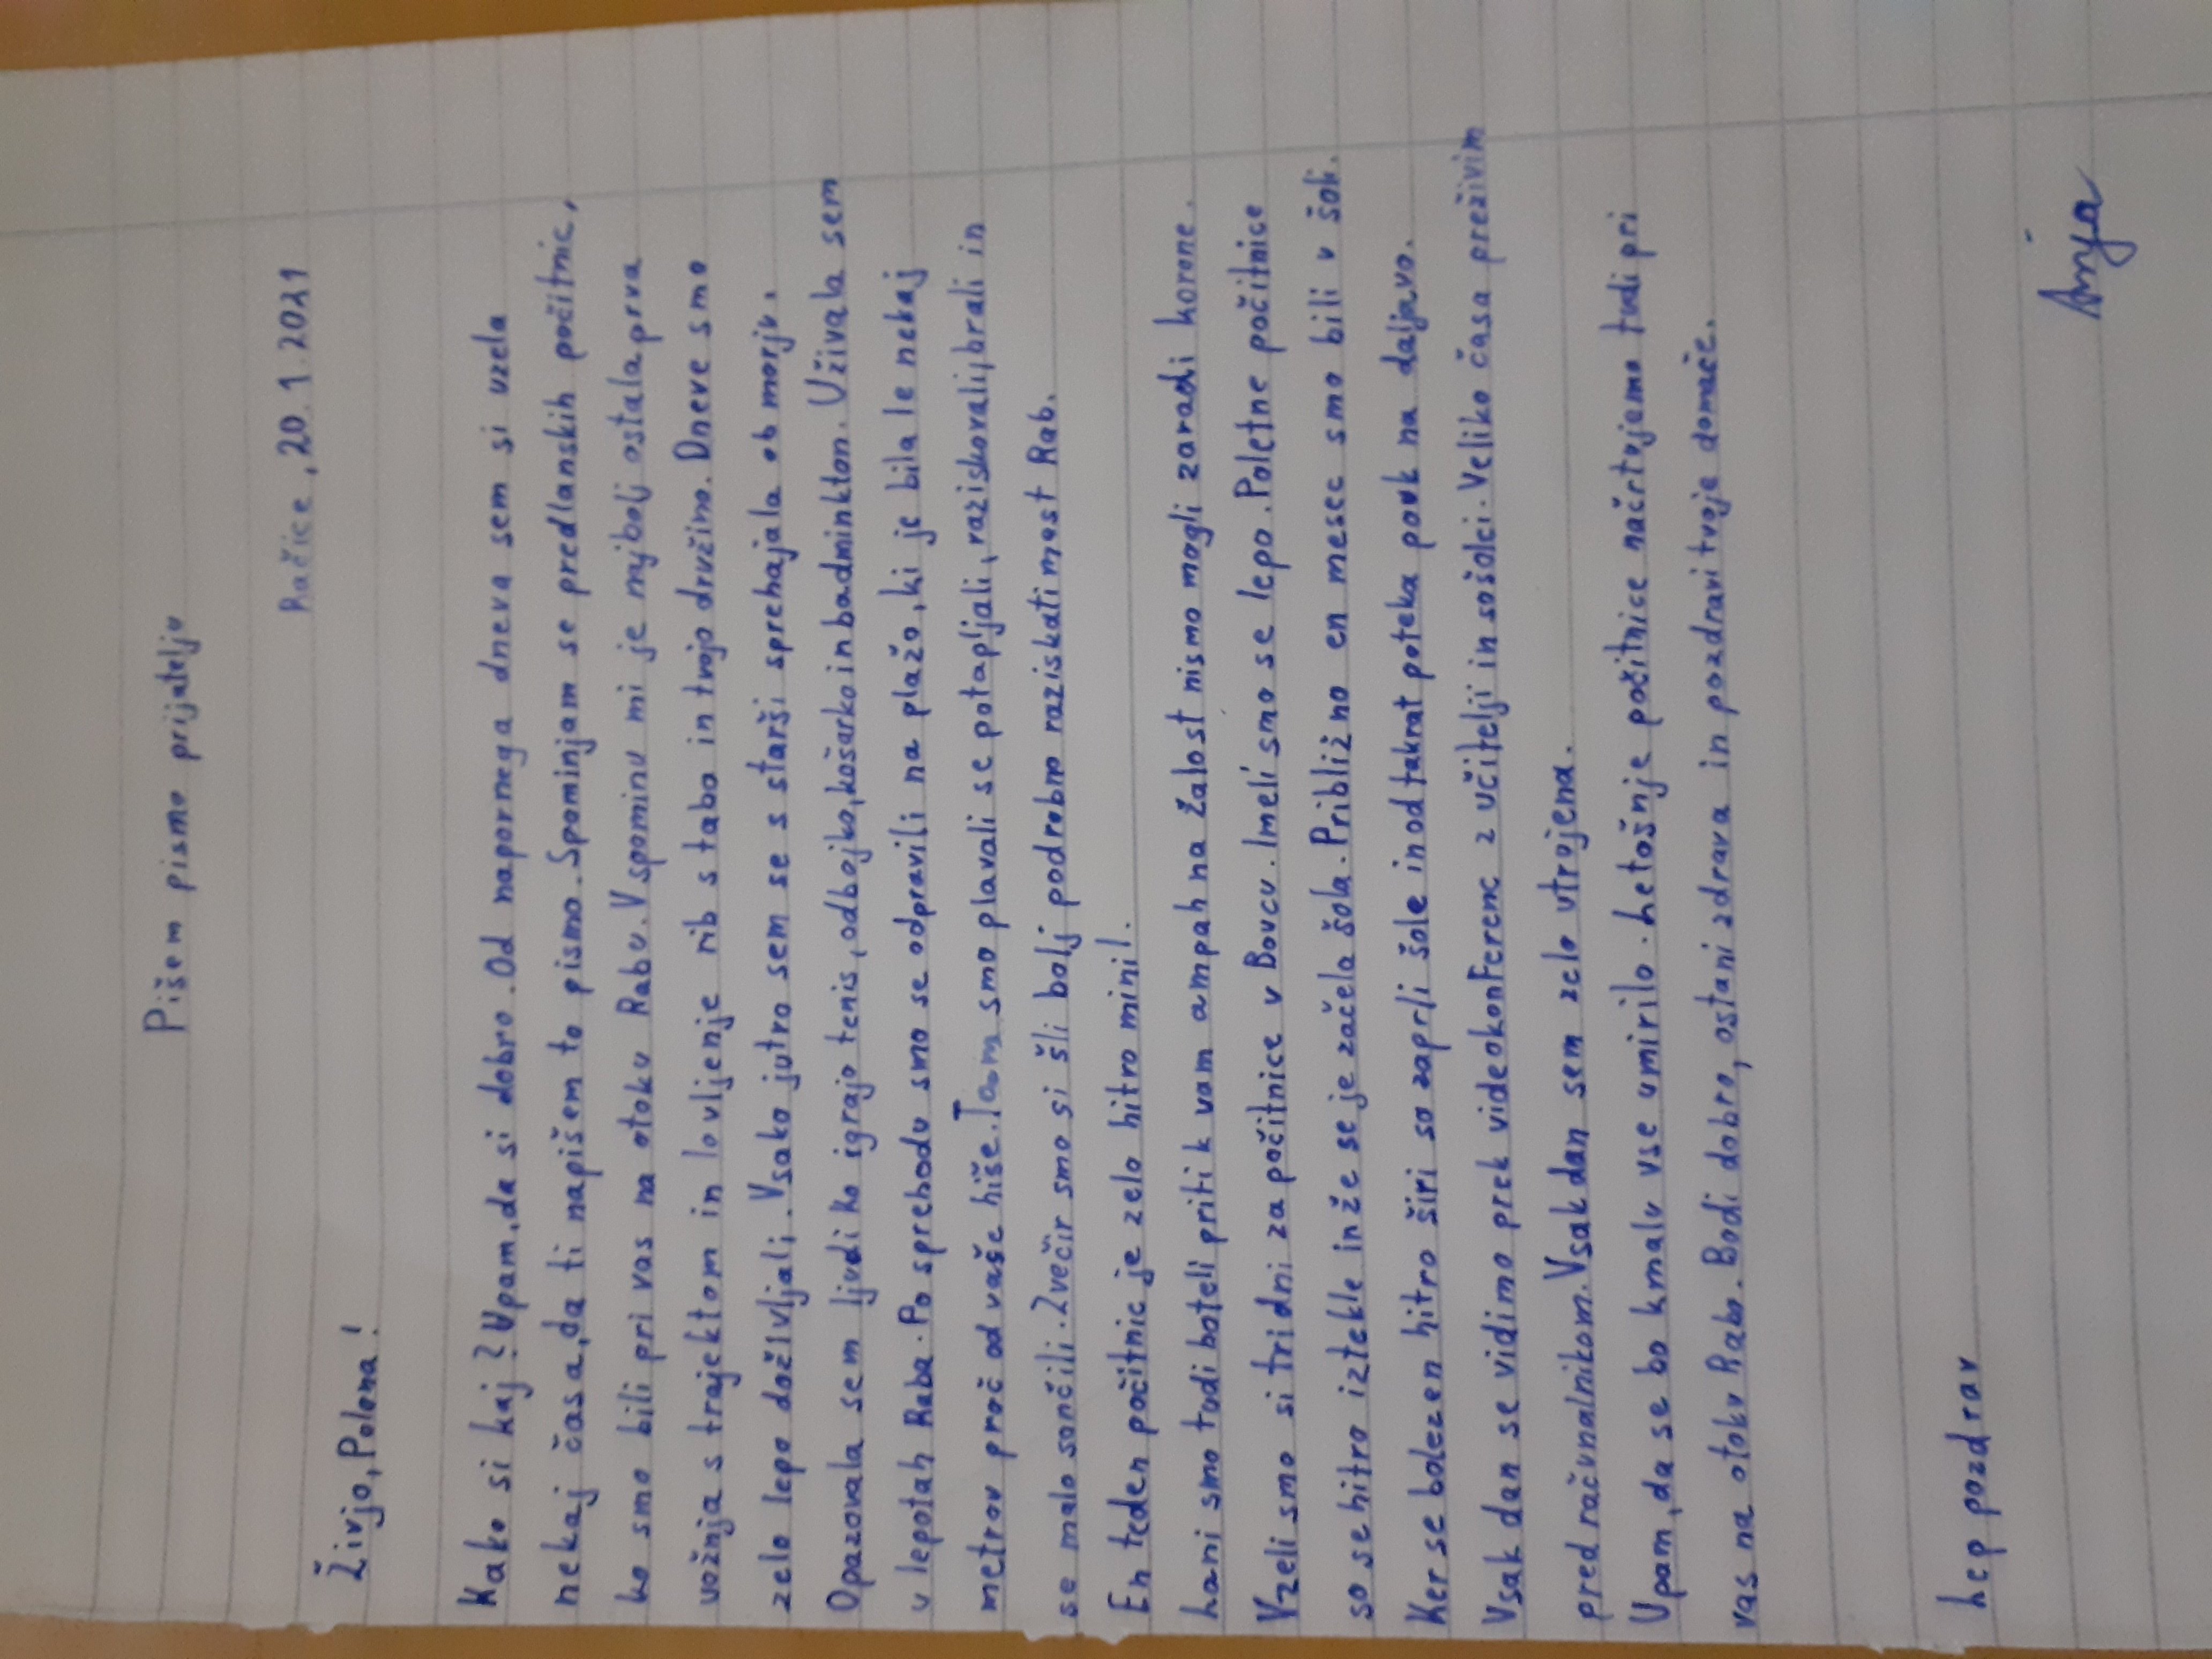 Pišem pismo prijatelju
Račice, 20.1.2021
Živjo, Polona!
Kako si kaj? Upam, da si dobro. Od napornega dneva sem si vzela
nekaj časa, da ti napišem to pismo. Spominjam se predlanskih počitnic,
ko smo bili pri vas na otoku Rabu. V spominu mi je najbolj ostala prva
vožnja s trajektom in lovljenje rib s tabo in tvojo družino. Dneve smo
zelo lepo doživljali. Vsako jutro sem se s starši sprehajala ob morju.
Opazovala sem ljudi ko igrajo tenis, odbojko, košarko in badminkton. Uživala sem
v lepotah Raba. Po sprehodu smo se odpravili na plažo, ki je bila le nekaj
metrov proč od vaše hiše. Tam smo plavali se potapljali, raziskovali, brali in
se malo sončili. Zvečir smo si šli bolj podrobno raziskati mest Rab.
En teden počitnic je zelo hitro minil.
Lani smo tudi hoteli priti k vam ampah na žalost nismo mogli zaradi korone.
Vzeli smo si tri dni za počitnice v Bovcu. Imeli smo se lepo. Poletne počitnice
so se hitro iztekle in že se je začela šola. Približno en mesec smo bili v šoli.
Ker se bolezen hitro širi so zaprli šole in od takrat poteka pouk na daljavo.
Vsak dan se vidimo prek videokonferenc z učitelji in sošolci. Veliko časa preživim
pred računalnikom. Vsak dan sem zelo utrojena.
Upam, da se bo kmalu vse umirilo. Letošnje počitnice načrtujemo tudi pri
vas na otoku Rabu. Bodi dobro, ostani zdrava in pozdravi tvoje domače.
Lep pozdrav
Anja